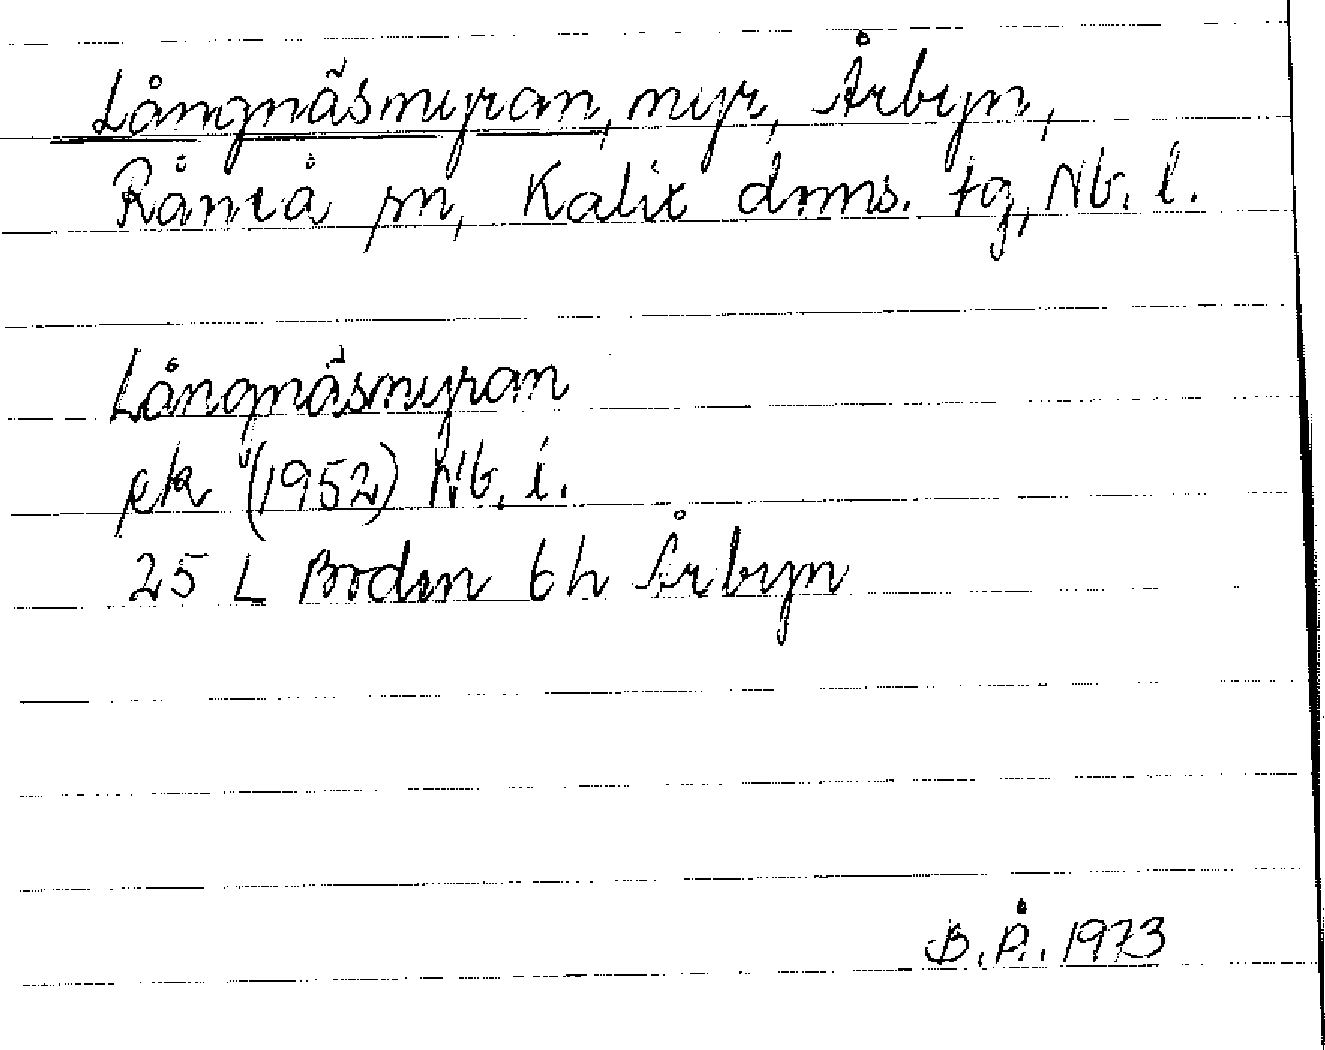 Långnäsmyran, myr, Årbyn,
Råneå sn, Kalix doms. tg, Nb. l.
Långnäsmyran
ek (1952) Nb. l.
25 L Boden 6h Årbyn
B.Å. 1973